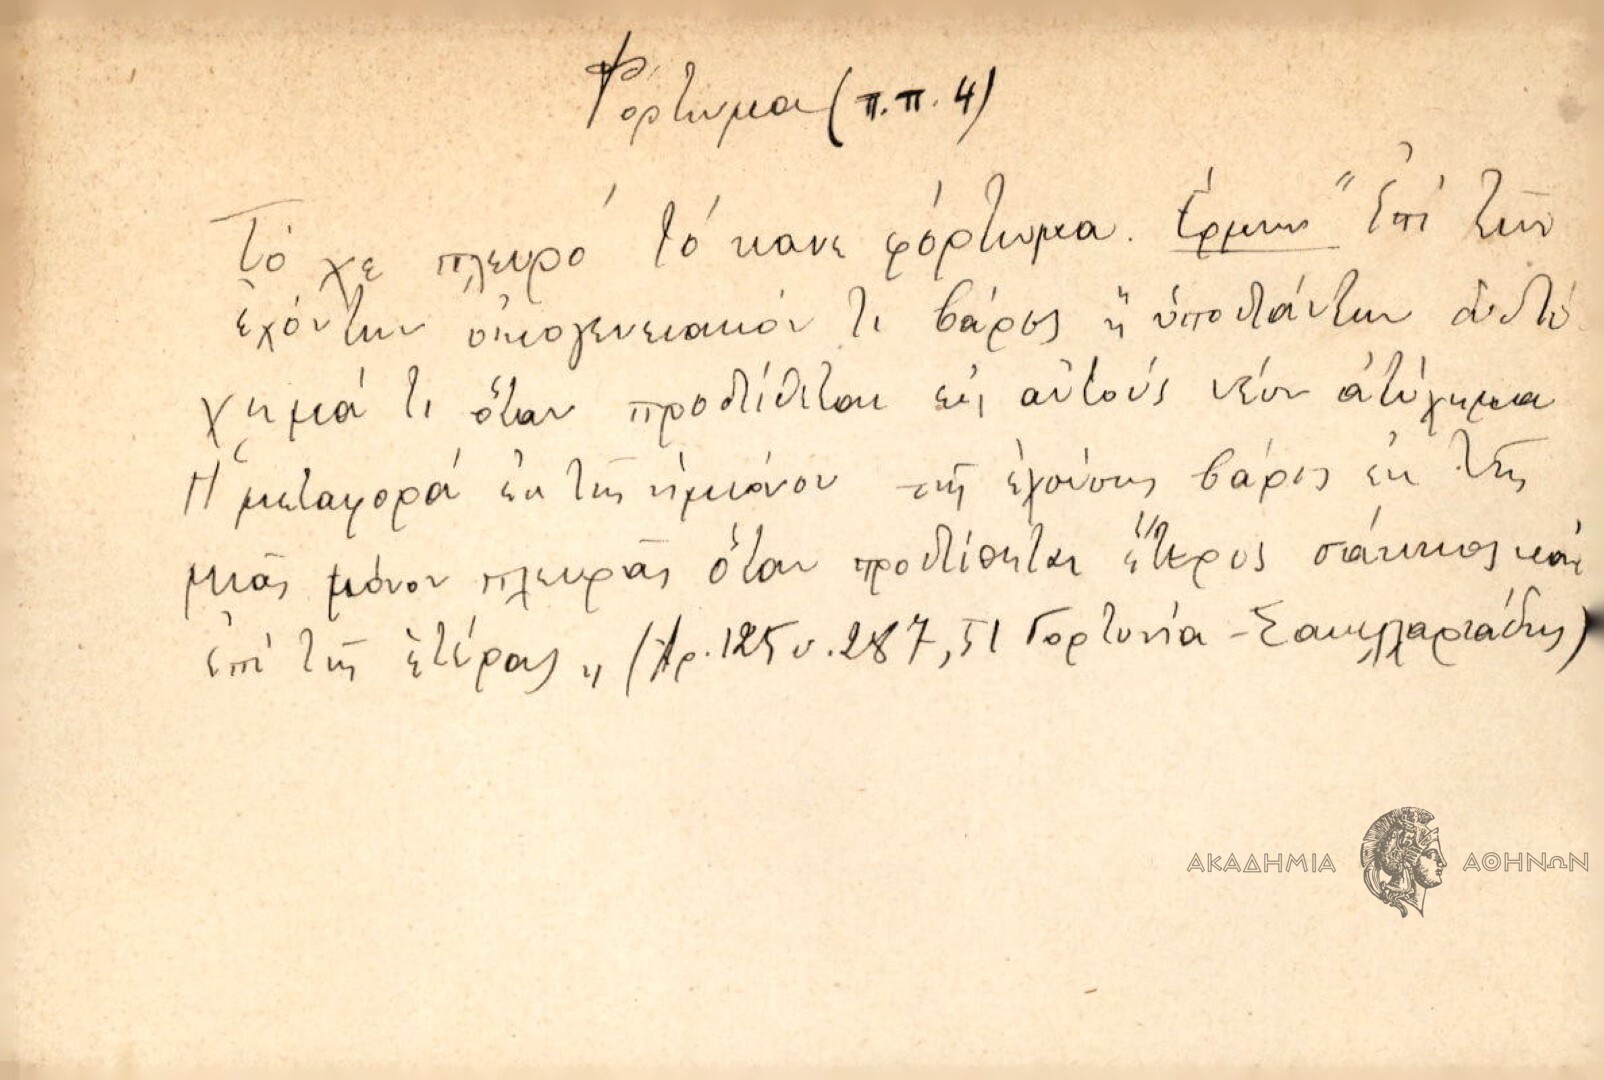 Φόρτωμα (π.π. 4)
Τό χε πλευρό τό κανε φόρτωμα. Ἑρμην "Ἐπί τῶν
ἐχόντων οἰκογενειακόν τι βάρος ἤ ὑποστάντων δυστύ
χημά τι ὅταν προστίθεται εἰς αὐτούς νέον ἀτύχημα
Ἡ μεταφορά ἐκ τῆς ἡμιόνου τῆς ἐχούσης βάρος ἐκ τῆς
μιᾶς μόνον πλευρᾶς ὅταν προστίθεται ἕτερος σάκκος καί
ἐπί τῆς ἑτέρας" (Ἀρ. 125 σ. 287, 51 Γορτυνία - Σακελλαριάδης)
ΑΚΑΔΗΜΙΑ ΑΘΗΝΩΝ